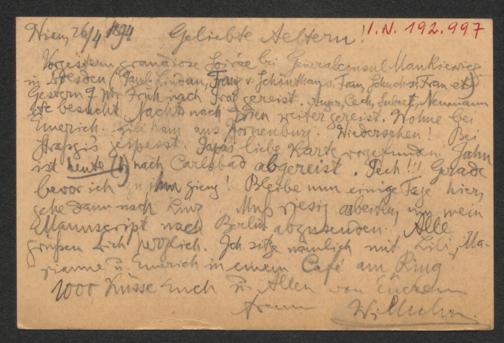 Wien, 26/4 1894 I.N. 192.997
Geliebte Aeltern!
Vorgestern grandiose Soirée bei Generalconsul Mankiewicz
in Dresden (Paul Lindau, Franz v. Schönthan,
Gestern 9 Uhr Früh nach Prag gereist. Auger, Cech, Neumann
etc besucht. Nachts nach Wien weiter gereist. Wohne bei
Emerich. aus Korneuburg. Wiedersehen! Bei
gespeist. Papas liebe Karte vorgefunden. Jahn
ist heute nach Carlsbad abgereist. Pech!!! Gerade
bevor ich zu ihm gieng! Bleibe nun einige Tage hier,
gehe dann nach Linz. Muß riesig arbeiten, um mein
Manuscript nach Berlin abzusenden. Alle
grüßen Dich herzlich. Ich sitze nämlich mit Lili, Ma-
rianne u. Emerich in einem Café am Ring
1000 Küsse Euch u. Allen von Eurem
treuen Wilhelm